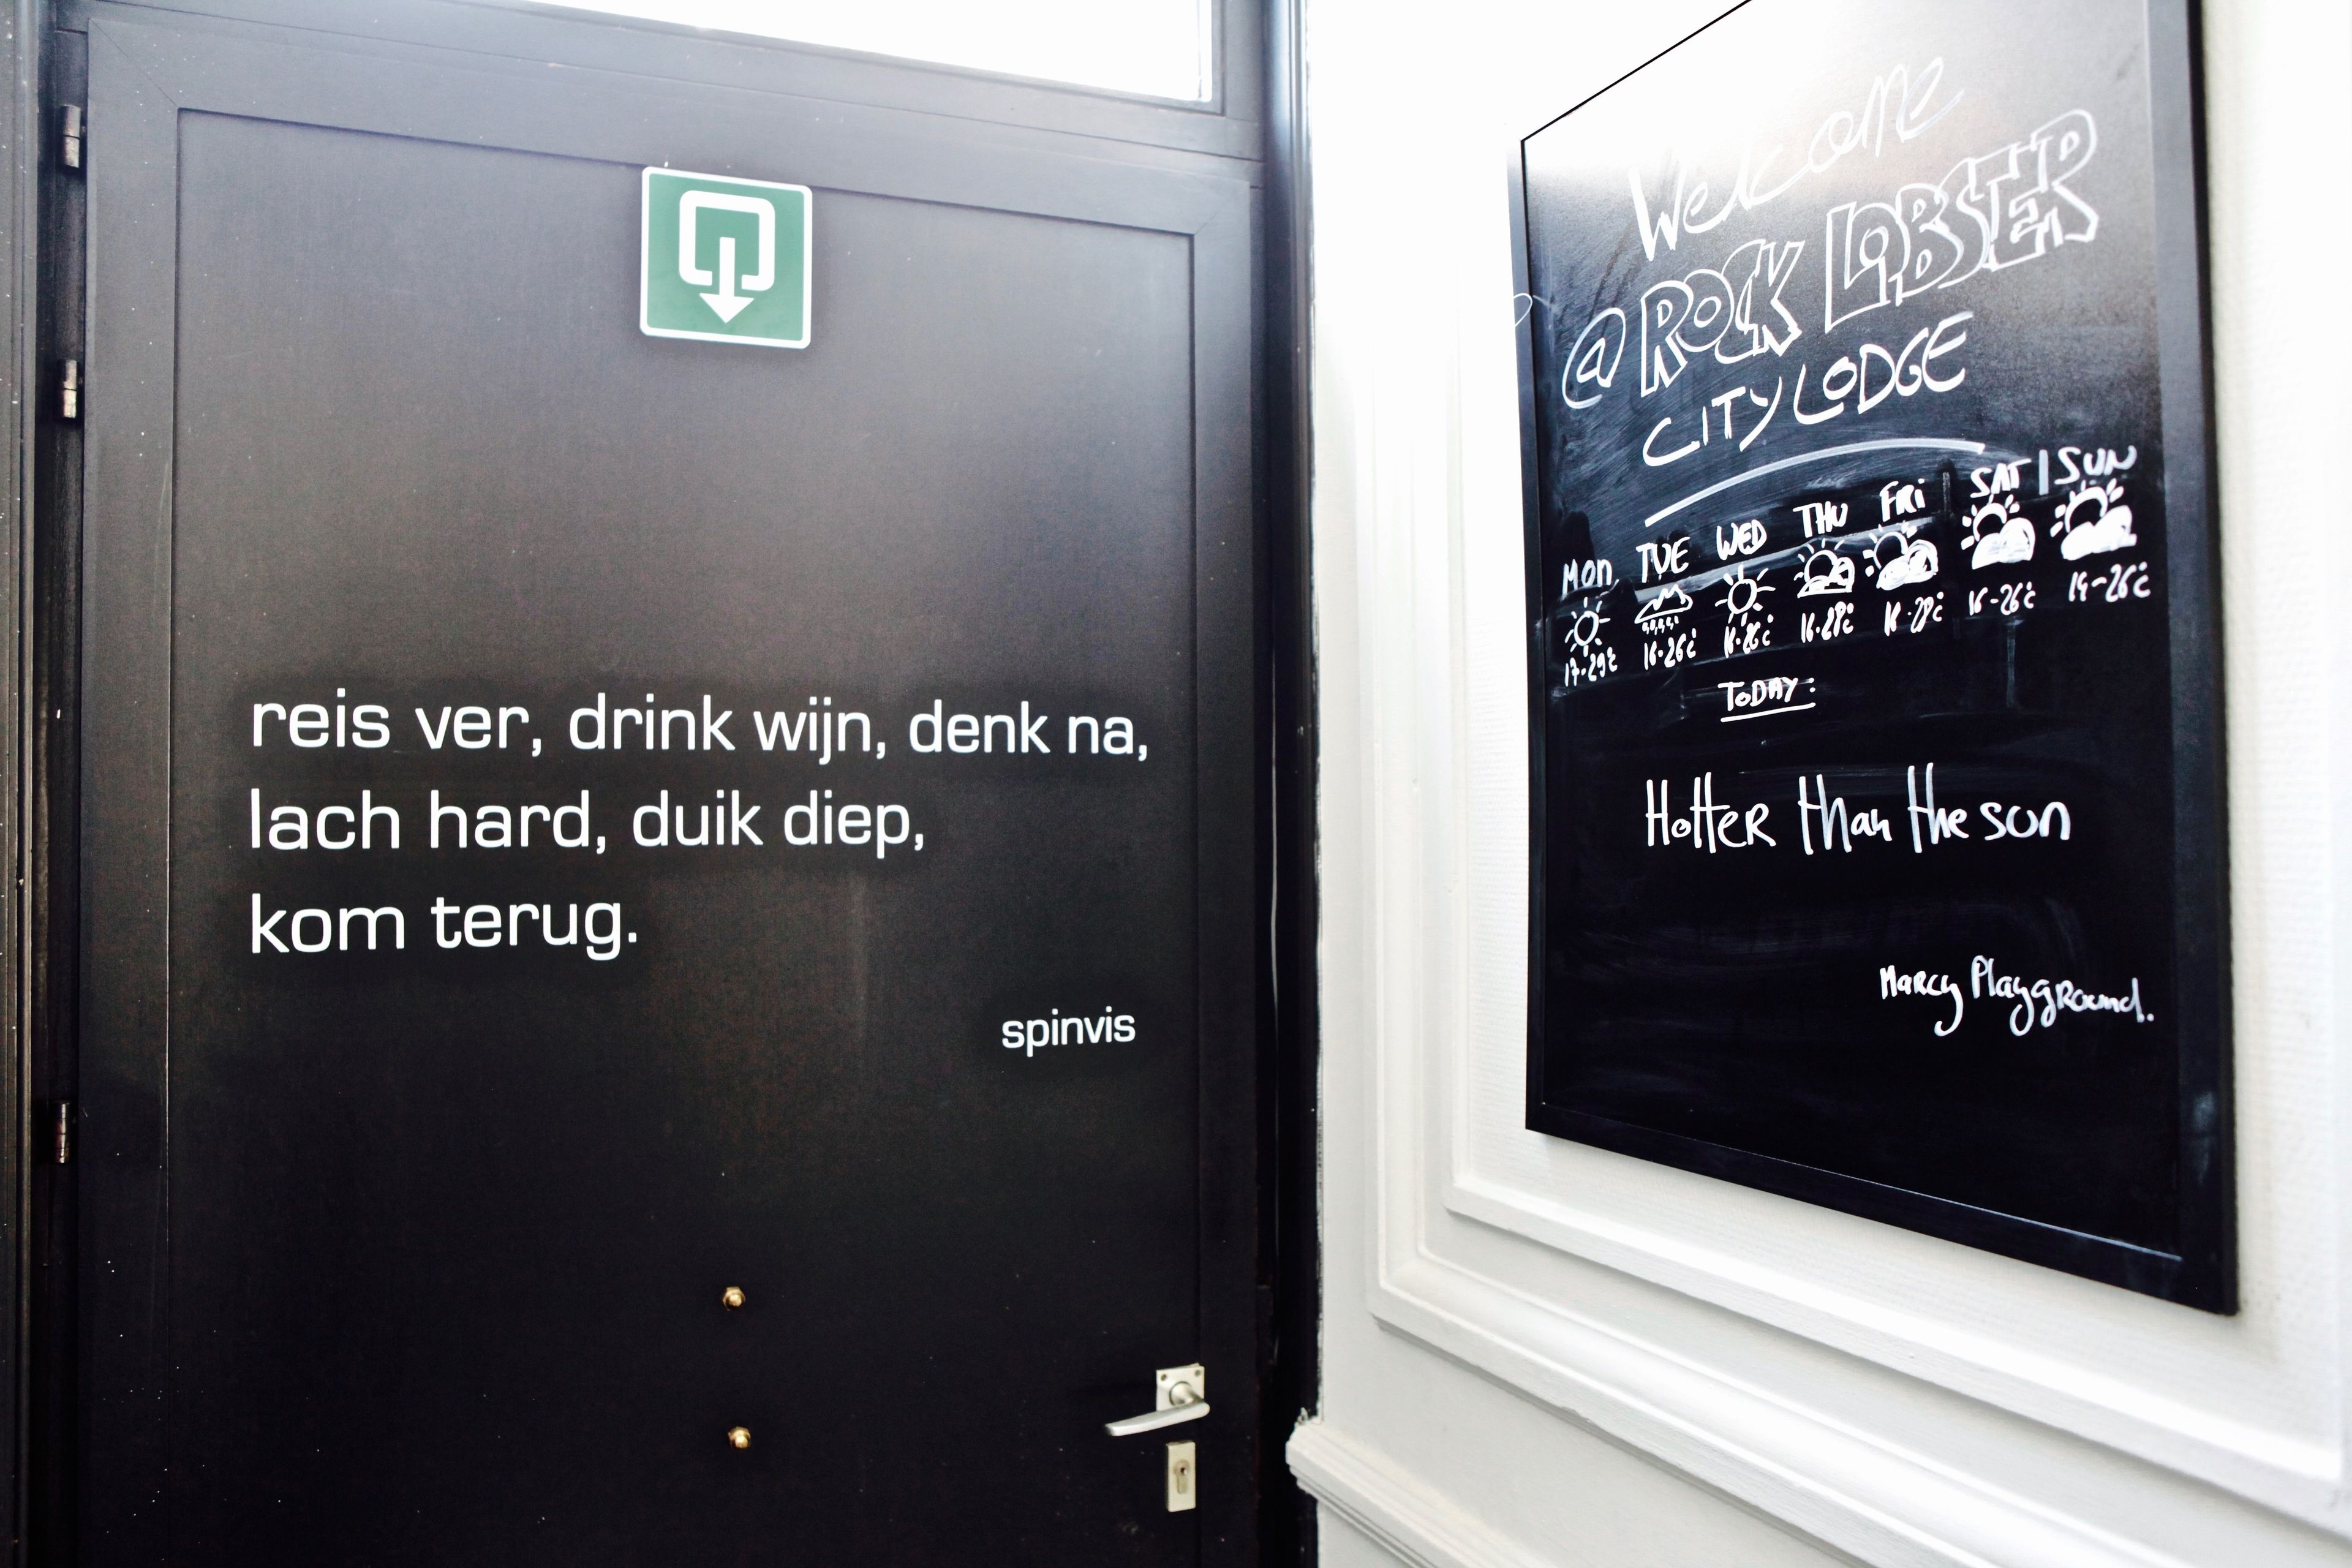 reis ver, drink wijn, denk na,
lach hard, duik diep,
kom terug.
spinvis
Welcome
@ ROCK LOBSTER
CITY LODGE
MON TUE WED THU FRi SAT | SUN
17-29°c 16-26°c 16-26°c 16-28°c 16-26°c
TODAY:
HotteR than the son
Marcy PlaygRound.